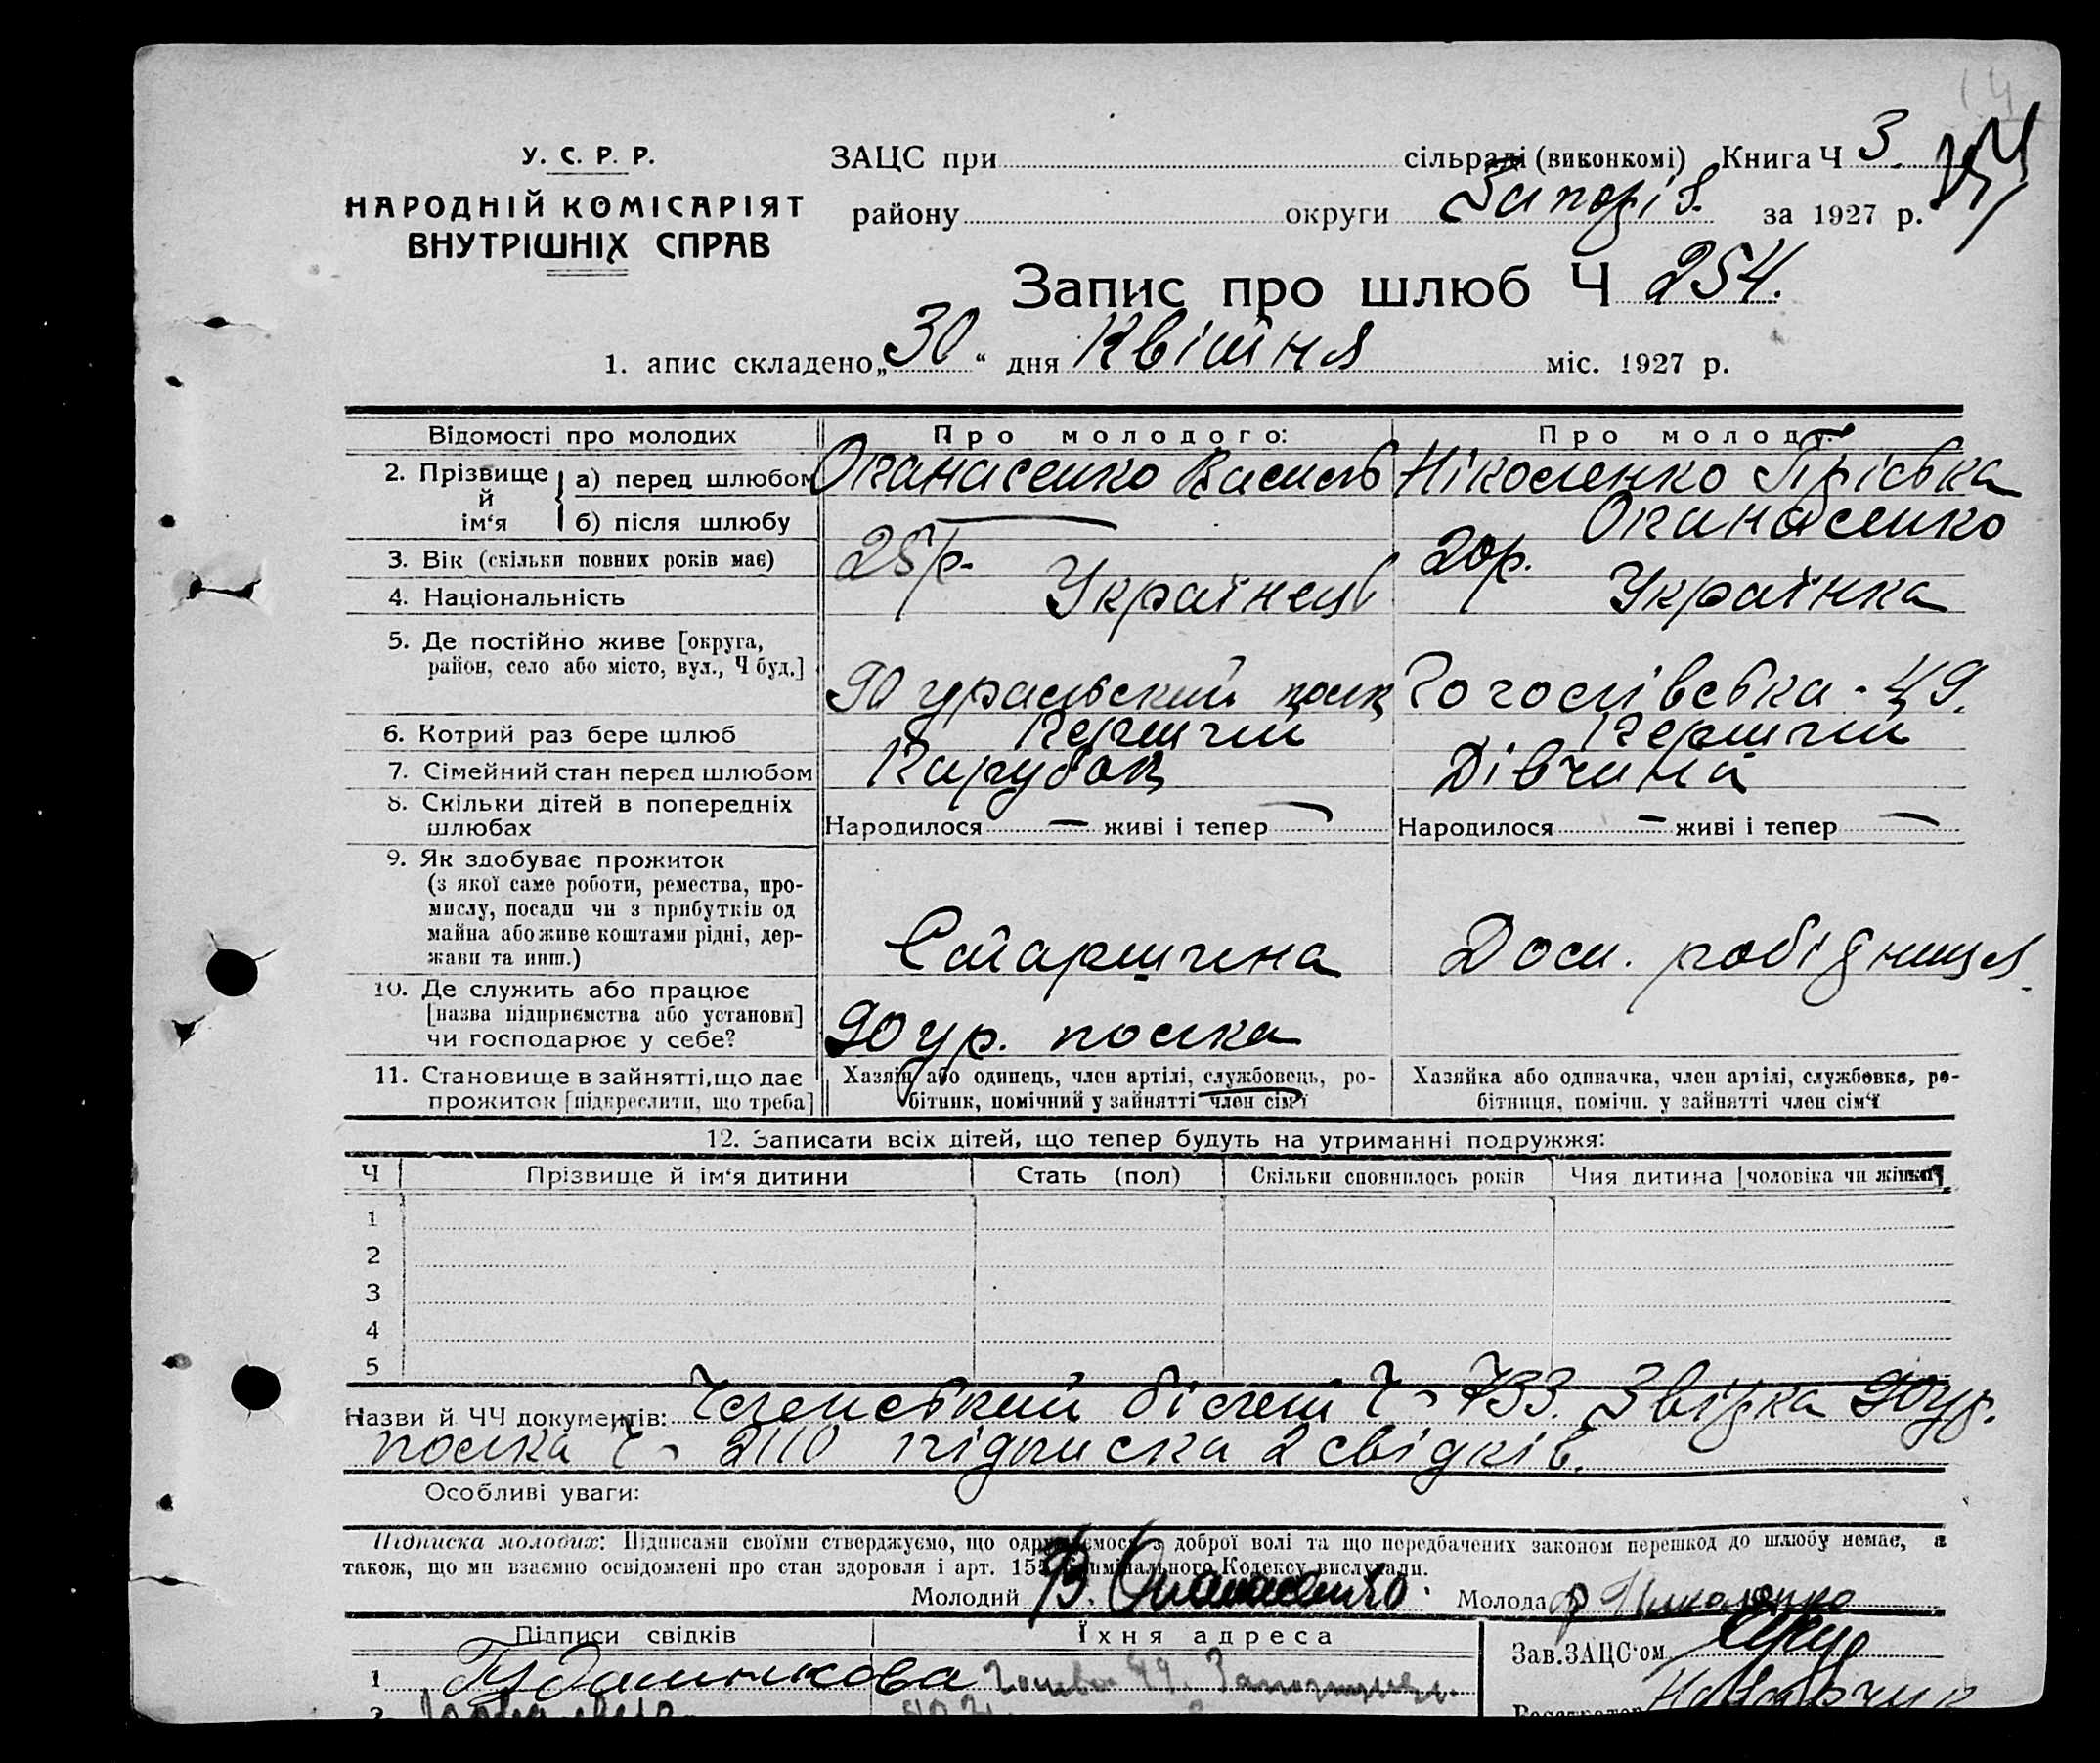 14
У. С. Р. Р.
НАРОДНІЙ КОМІСАРІЯТ
ВНУТРІШНІХ СПРАВ
ЗАЦС при сільраді (виконкомі) Книга Ч 3
району округи Запоріз. за 1927 р.
Запис про шлюб Ч 254.
1. апис складено „30“ дня Квітня міс. 1927 р.
Відомості про молодих Про молодого: Про молоду:
2. Прізвище й ім‘я
а) перед шлюбом Опанасенко Василь Ніколенко Пріська
б) після шлюбу — Опанасенко
3. Вік (скільки повних років має) 25 р. 20 р.
4. Національність Українець Українка
5. Де постійно живе [округа,
район, село або місто, вул., Ч буд.] 90 уральский полк Гоголівська - 49.
6. Котрий раз бере шлюб Перший Перший
7. Сімейний стан перед шлюбом Парубок Дівчина
8. Скільки дітей в попередніх
шлюбах Народилося — живі і тепер — Народилося — живі і тепер —
9. Як здобуває прожиток
(з якої саме роботи, ремества, про-
мислу, посади чи з прибутків од
майна або живе коштами рідні, дер-
жави та инш.) Старшина Дом. робідниця.
10. Де служить або працює
[назва підприємства або установи]
чи господарює у себе? 90 ур. полка
11. Становище в зайнятті, що дає
прожиток [підкреслити, що треба]
Хазяїн або одинець, член артілі, службовець, ро-
бітник, помічний у зайнятті член сім‘ї
Хазяйка або одиначка, член артілі, службовка, ро-
бітниця, помічн. у зайнятті член сім‘ї
12. Записати всіх дітей, що тепер будуть на утриманні подружжя:
Ч Прізвище й ім‘я дитини Стать (пол) Скільки сповнилось років Чия дитина [чоловіка чи жінки]
1
2
3
4
5
Назви й ЧЧ документів: Членський білет Ч 733. Звідка 90 ур.
полка Ч 2110 підписка 2 свідків.
Особливі уваги:
Підписка молодих: Підписами своїми стверджуємо, що одружуємося з доброї волі та що передбачених законом перешкод до шлюбу немає, а
також, що ми взаємно освідомлені про стан здоровля і арт. 155 Кримінального Кодексу вислухали.
Молодий В. Опанасенко. Молода Николенко
Підписи свідків Їхня адреса
Зав. ЗАЦС‘ом
1 49.
2
Реєстратор